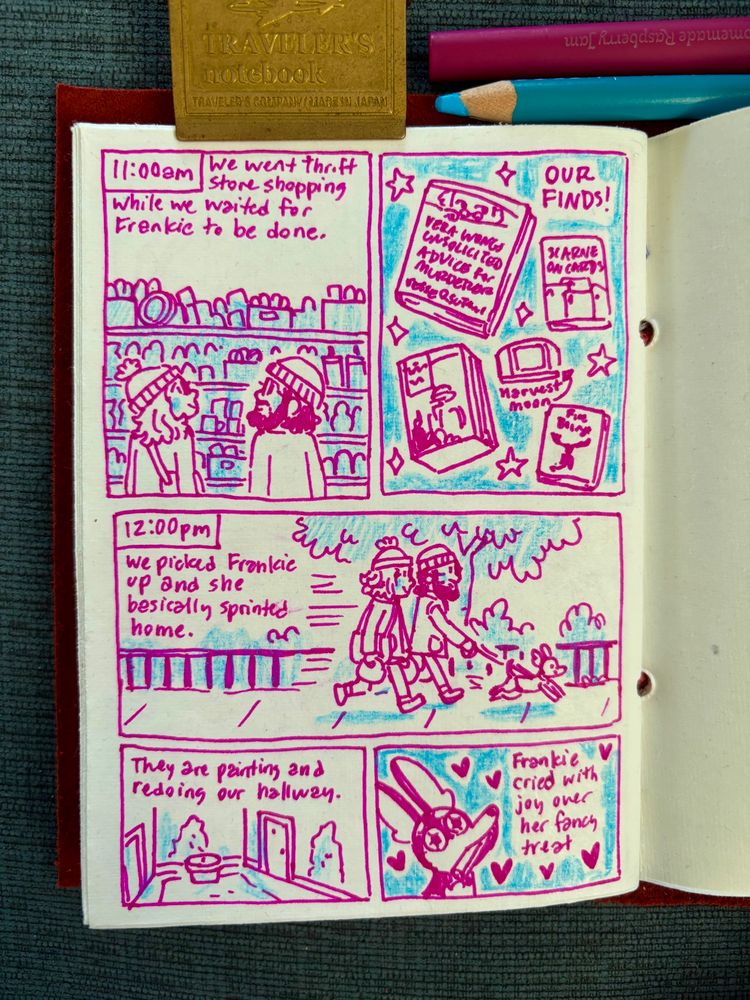 TRAVELER'S
notebook
TRAVELER'S COMPANY / MADE IN JAPAN
Homemade Raspberry Jam
11:00am
We went thrift
store shopping
while we waited for
Frankie to be done.
OUR
FINDS!
VERA WONG'S
UNSOLICITED
ADVICE for
MURDERERS
SCARNE
ON CARDS
harvest
moon
12:00pm
We picked Frankie
up and she
basically sprinted
home.
They are painting and
redoing our hallway.
Frankie
cried with
joy over
her fancy
treat